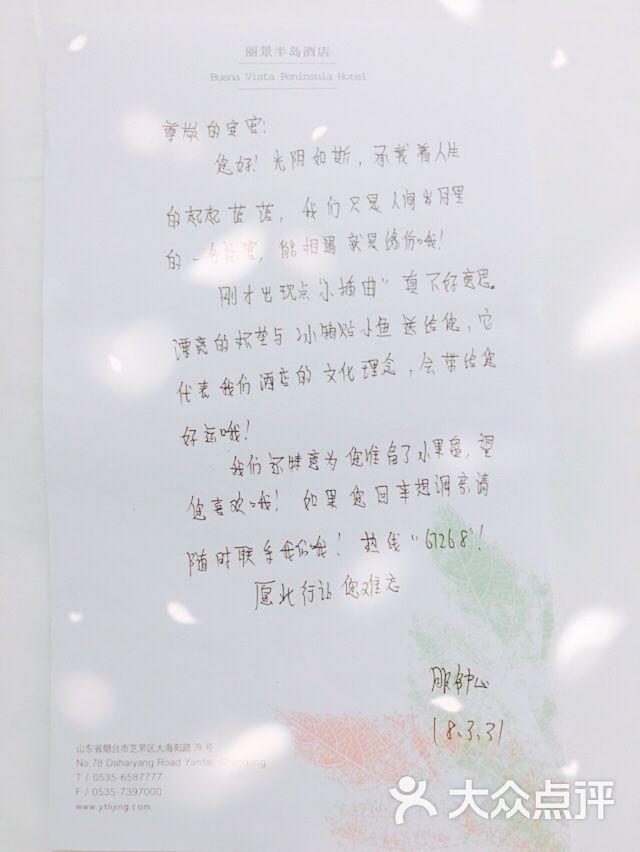 丽景半岛酒店
Buena Vista Peninsula Hotel
尊敬的宾客:
您好! 光阴如斯, 承载着人生
的起起落落, 我们只是人间岁月里
的一名过客, 能相遇就是缘份哦!
刚才出现点"小插曲"真不好意思。
漂亮的杯垫与冰箱贴小鱼送给您, 它
代表我们酒店的文化理念, 会带给您
好运哦!
我们还特意为您准备了水果盘, 望
您喜欢哦! 如果您回来想调房请
随时联系我们哦! 热线"67268"!
愿此行让您难忘
服务中心
18.3.31
山东省烟台市芝罘区大海阳路 78 号
No.78 Dahaiyang Road Yantai, Shandong
T / 0535-6587777
F / 0535-7397000
www.ytlijing.com
大众点评